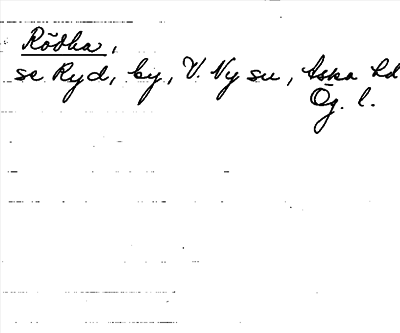 Rödha,
se Ryd, by, V. Ny sn, Aska hd
Ög. l.